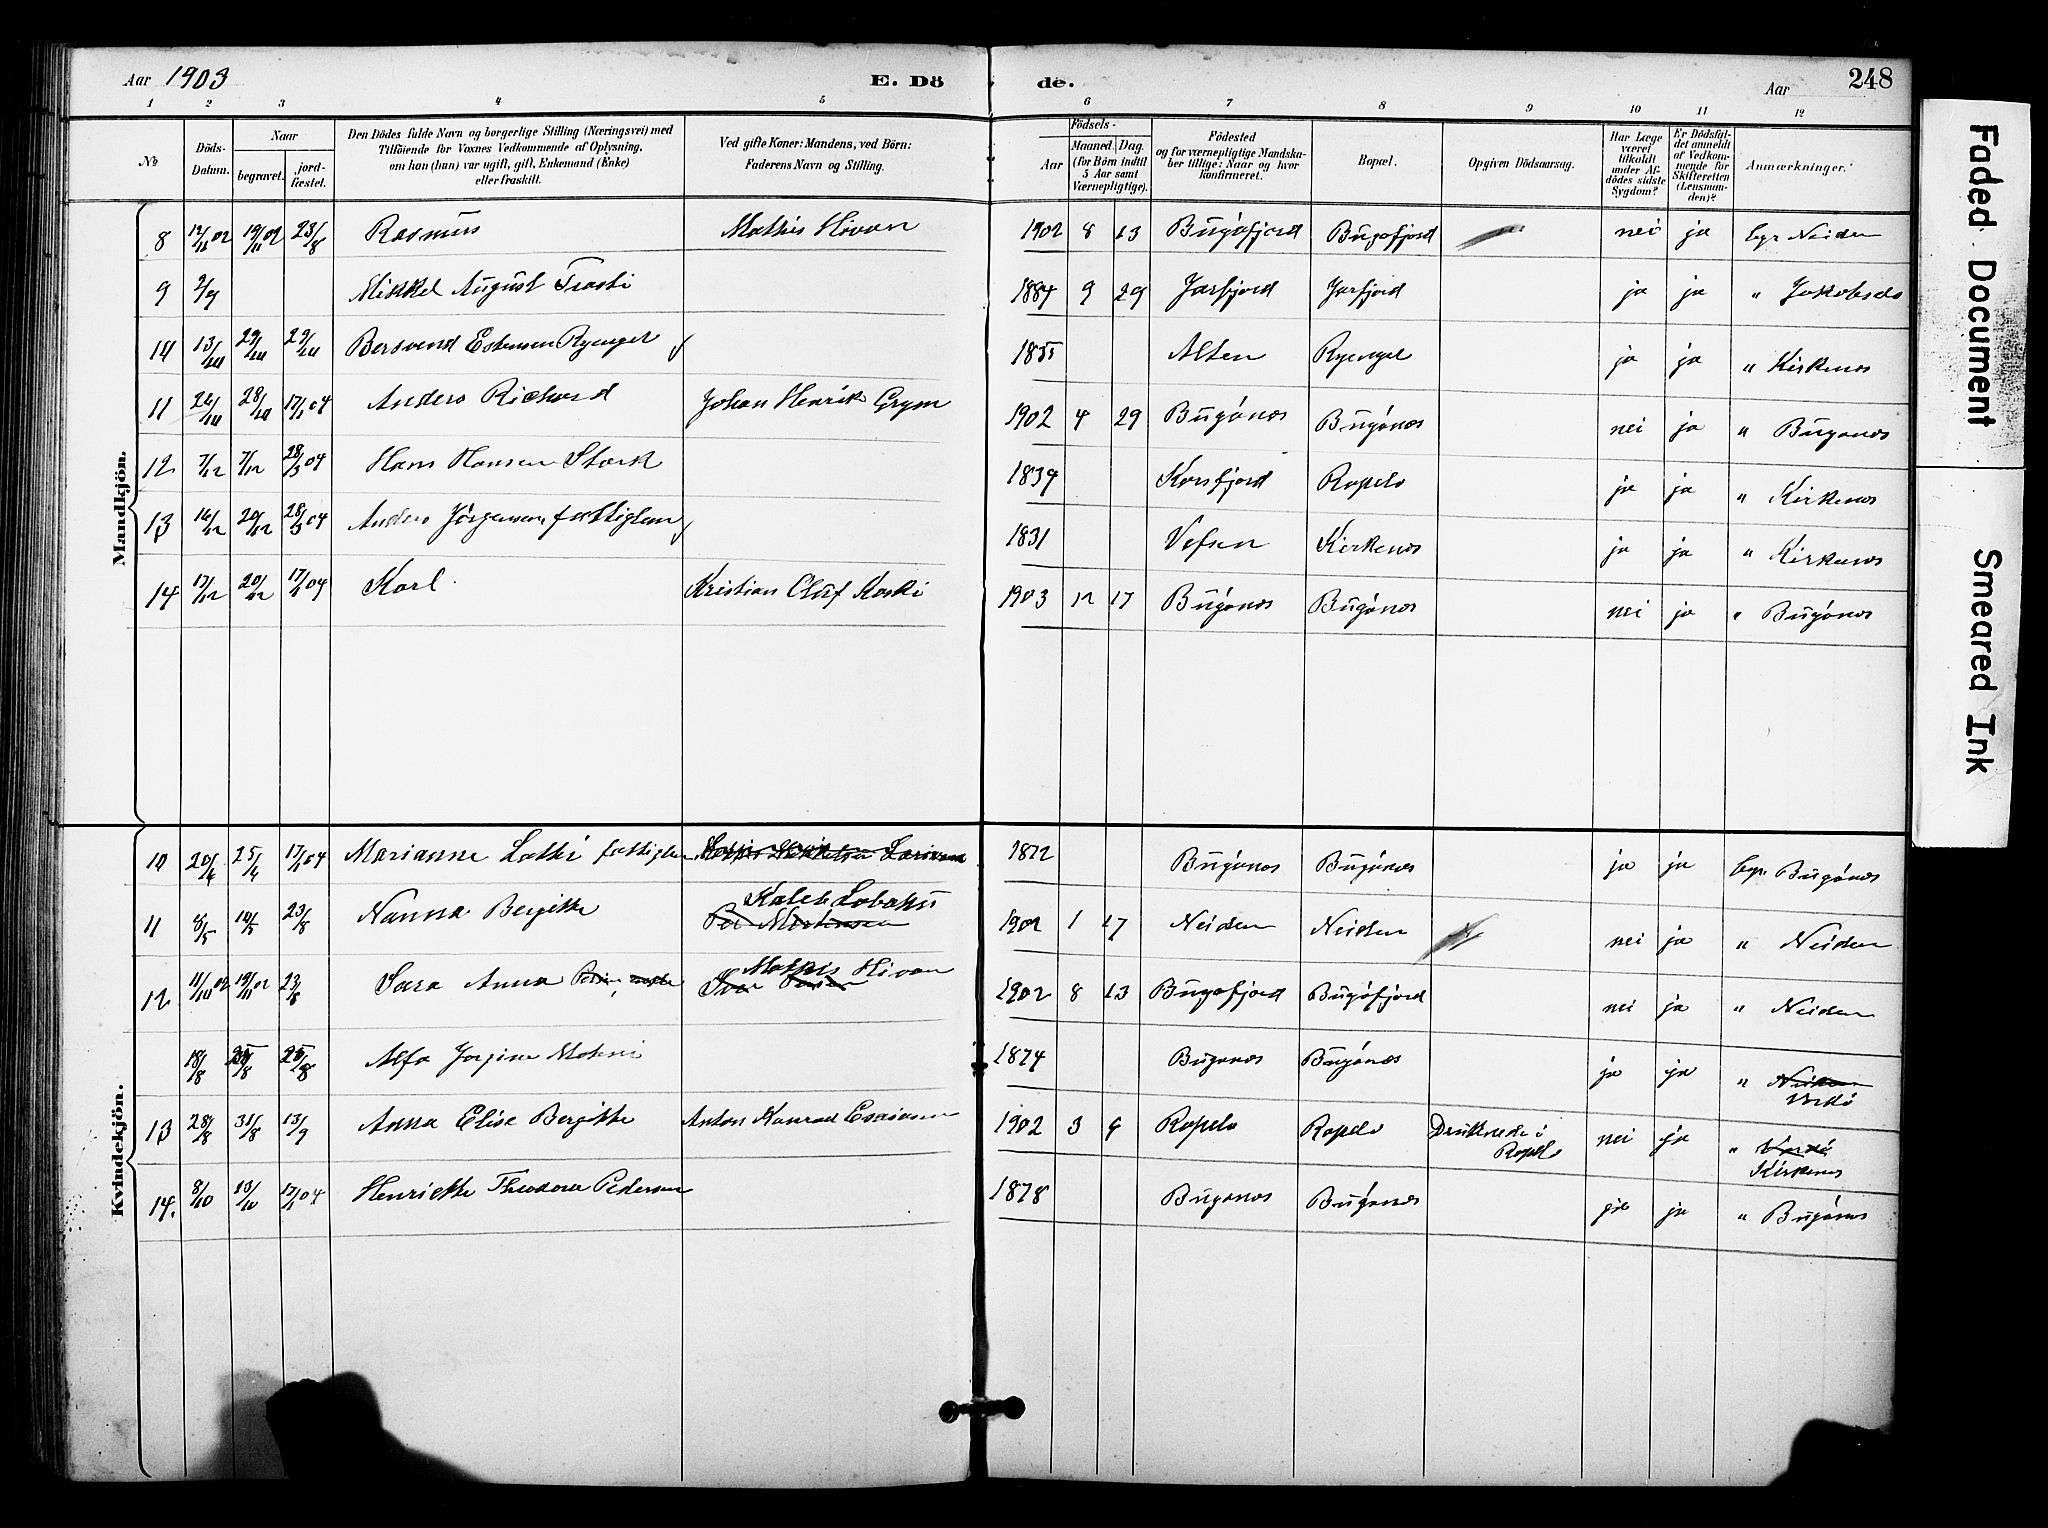 Aar 1903 E. Dö de. Aar 248
1 2 3 4 5 6 7 8 9 10 11 12
No
Döds-Datum.
Naar
begravet.
jord-fæstet.
Den Dödes fulde Navn og borgerlige Stilling (Næringsvei) med
Tilföiende for Voxnes Vedkommende af Oplysning,
om han (hun) var ugift, gift, Enkemand (Enke)
eller fraskilt.
Ved gifte Koner: Mandens, ved Börn:
Faderens Navn og Stilling.
Födsels-
Aar
Maaned. Dag.
(for Börn indtil
5 Aar samt
Værnepligtige).
Födested
og for værnepligtige Mandska-
ber tillige: Naar og hvor
konfirmeret.
Bopæl.
Opgiven Dödsaarsag.
Har Læge
været
tilkaldt
under Af-
dödes sidste
Sygdom?
Er Dödsfal-
det anmeldt
af Vedkom-
mende for
Skifteretten
(Lensman-
den)?
Anmærkninger.
Mandkjön.
8 12/11 02 19/11 02 23/8 Rasmus Mathis Hivan 1902 8 13 Bugöfjord Bugöfjord nei ja begr Neiden
9 2/9 Mikkel August Trasti 1884 9 29 Jarfjord Jarfjord ja ja " Jakobselv
Bersvend Estensen Ryeng 1855 Alten Ryenget ja ja " Kirkenes
11 28/10 17/1 04 Anders Richard Johan Henrik Grym 1902 4 29 Bugönes Bugönes nei ja " Bugönes
12 7/12 7/12 28/3 04 Hans Hansen Stark 1839 Korsfjord Ropelv ja ja " Kirkenes
13 16/12 20/12 28/3 04 Anders Jörgensen, fattiglem 1831 Vefsen Kirkenes ja ja " Kirkenes
14 17/12 20/12 17/1 04 Karl Kristian Oluf Koski 1903 12 17 Bugönes Bugönes nei ja " Bugönes
Kvindekjön.
10 20/4 25/4 17/1 04 Marianne fattiglem Bugönes Bugönes ja ja begr. Bugönes
11 8/5 14/5 23/8 Nanna Bergitte Kaleb Labahu
Per Mortensen 1902 1 17 Neiden Neiden nei ja " Neiden
12 19/11 02 23/8 Sara Anna Mathis Hivan
Iver 1902 8 13 Bugöfjord Bugöfjord nei ja " Neiden
18/8 25/8 Alfa Jorgine Mohni 1874 Bugönes Bugönes ja ja " Neiden
Vardö
13 28/8 31/8 13/9 Anna Elise Bergitte Anton Konrad Esaiasen 1902 3 9 Ropelv Ropelv Druknede i
Ropelv nei ja " Vardö
Kirkenes
14. 8/10 13/10 17/1 04 Henriette Theodora Pedersen 1878 Bugönes Bugönes ja ja " Bugönes
Faded Document
Smeared Ink